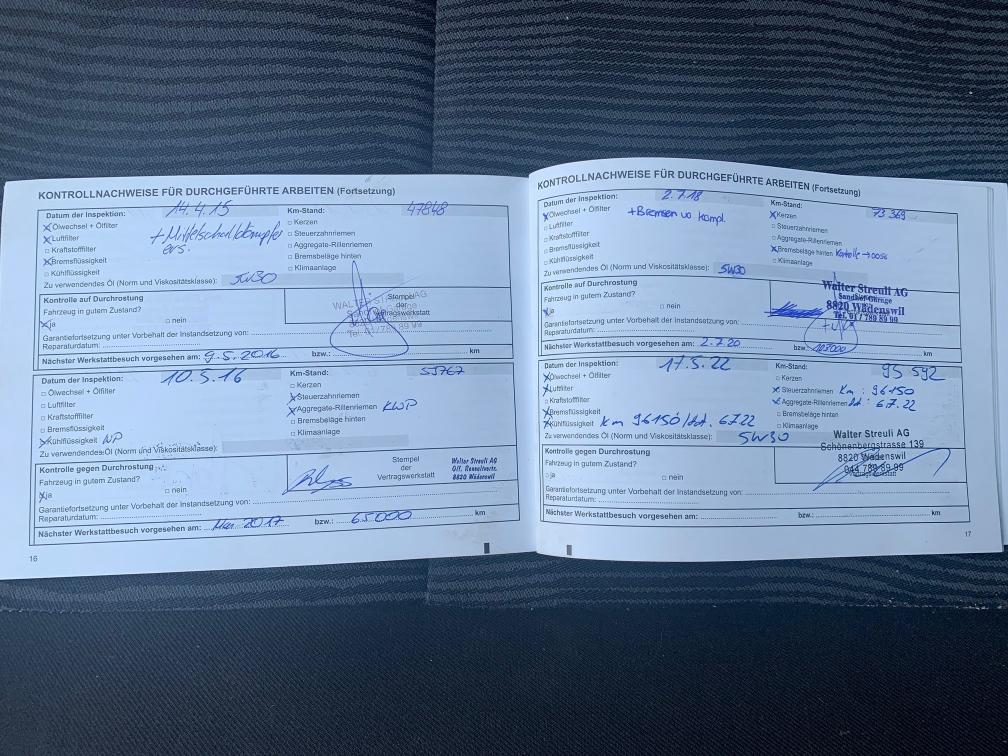 KONTROLLNACHWEISE FÜR DURCHGEFÜHRTE ARBEITEN (Fortsetzung)
Datum der Inspektion: 14.4.15 Km-Stand: 47848
Ölwechsel + Ölfilter
Luftfilter
Kraftstofffilter
Bremsflüssigkeit
Kühlflüssigkeit
+ Mittelschalldämpfer
ers.
Kerzen
Steuerzahnriemen
Aggregate-Rillenriemen
Bremsbeläge hinten
Klimaanlage
Zu verwendendes Öl (Norm und Viskositätsklasse): 5W30
Kontrolle auf Durchrostung
Fahrzeug in gutem Zustand?
ja nein
Stempel
der
Vertragswerkstatt
Garantiefortsetzung unter Vorbehalt der Instandsetzung von:
Reparaturdatum:
Nächster Werkstattbesuch vorgesehen am: 9.5.2016 bzw.: km
Datum der Inspektion: 10.5.16 Km-Stand: 55767
Ölwechsel + Ölfilter
Luftfilter
Kraftstofffilter
Bremsflüssigkeit
Kühlflüssigkeit
Kerzen
Steuerzahnriemen
Aggregate-Rillenriemen
Bremsbeläge hinten
Klimaanlage
Zu verwendendes Öl (Norm und Viskositätsklasse):
Kontrolle gegen Durchrostung
Fahrzeug in gutem Zustand?
ja nein
Stempel
der
Vertragswerkstatt
Walter Streuli AG
8820 Wädenswil
Garantiefortsetzung unter Vorbehalt der Instandsetzung von:
Reparaturdatum:
Nächster Werkstattbesuch vorgesehen am: 2017 bzw.: 65000 km
16
KONTROLLNACHWEISE FÜR DURCHGEFÜHRTE ARBEITEN (Fortsetzung)
Datum der Inspektion: 2.7.18 Km-Stand: 73 369
Ölwechsel + Ölfilter
Luftfilter
Kraftstofffilter
Bremsflüssigkeit
Kühlflüssigkeit
+ Bremsen vo kompl.
Kerzen
Steuerzahnriemen
Aggregate-Rillenriemen
Bremsbeläge hinten Kontrolle
Klimaanlage
Zu verwendendes Öl (Norm und Viskositätsklasse): 5W30
Kontrolle auf Durchrostung
Fahrzeug in gutem Zustand?
ja nein
Walter Streuli AG
8820 Wädenswil
Garantiefortsetzung unter Vorbehalt der Instandsetzung von:
Reparaturdatum:
Nächster Werkstattbesuch vorgesehen am: 2.7.20 bzw.: 103000 km
Datum der Inspektion: 17.5.22 Km-Stand: 95 592
Ölwechsel + Ölfilter
Luftfilter
Kraftstofffilter
Bremsflüssigkeit
Kühlflüssigkeit km 96150/dat. 6.7.22
Kerzen
Steuerzahnriemen Km : 96150
Aggregate-Rillenriemen dat : 6.7.22
Bremsbeläge hinten
Klimaanlage
Zu verwendendes Öl (Norm und Viskositätsklasse): 5W30
Kontrolle gegen Durchrostung
Fahrzeug in gutem Zustand?
ja nein
Walter Streuli AG
Schönenbergstrasse 139
8820 Wädenswil
044 789 89 99
Garantiefortsetzung unter Vorbehalt der Instandsetzung von:
Reparaturdatum:
Nächster Werkstattbesuch vorgesehen am: bzw.: km
17